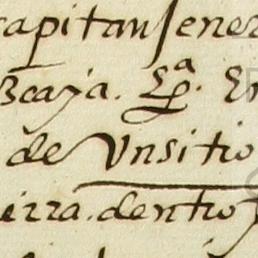 capitan Jener
Bcaya. Sᵃ. En
de Vn sitio
ierra. dentro